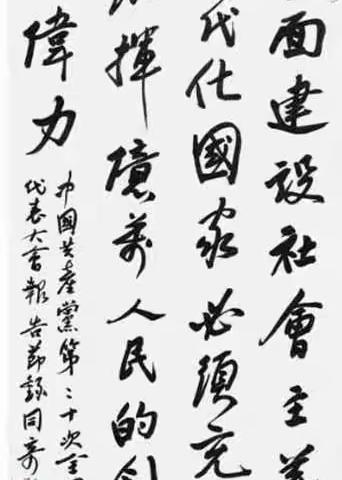 面建設社會主義
代化國家必須充
揮億萬人民的創
偉力
中國共產黨第二十次全國
代表大會報告節錄同奇